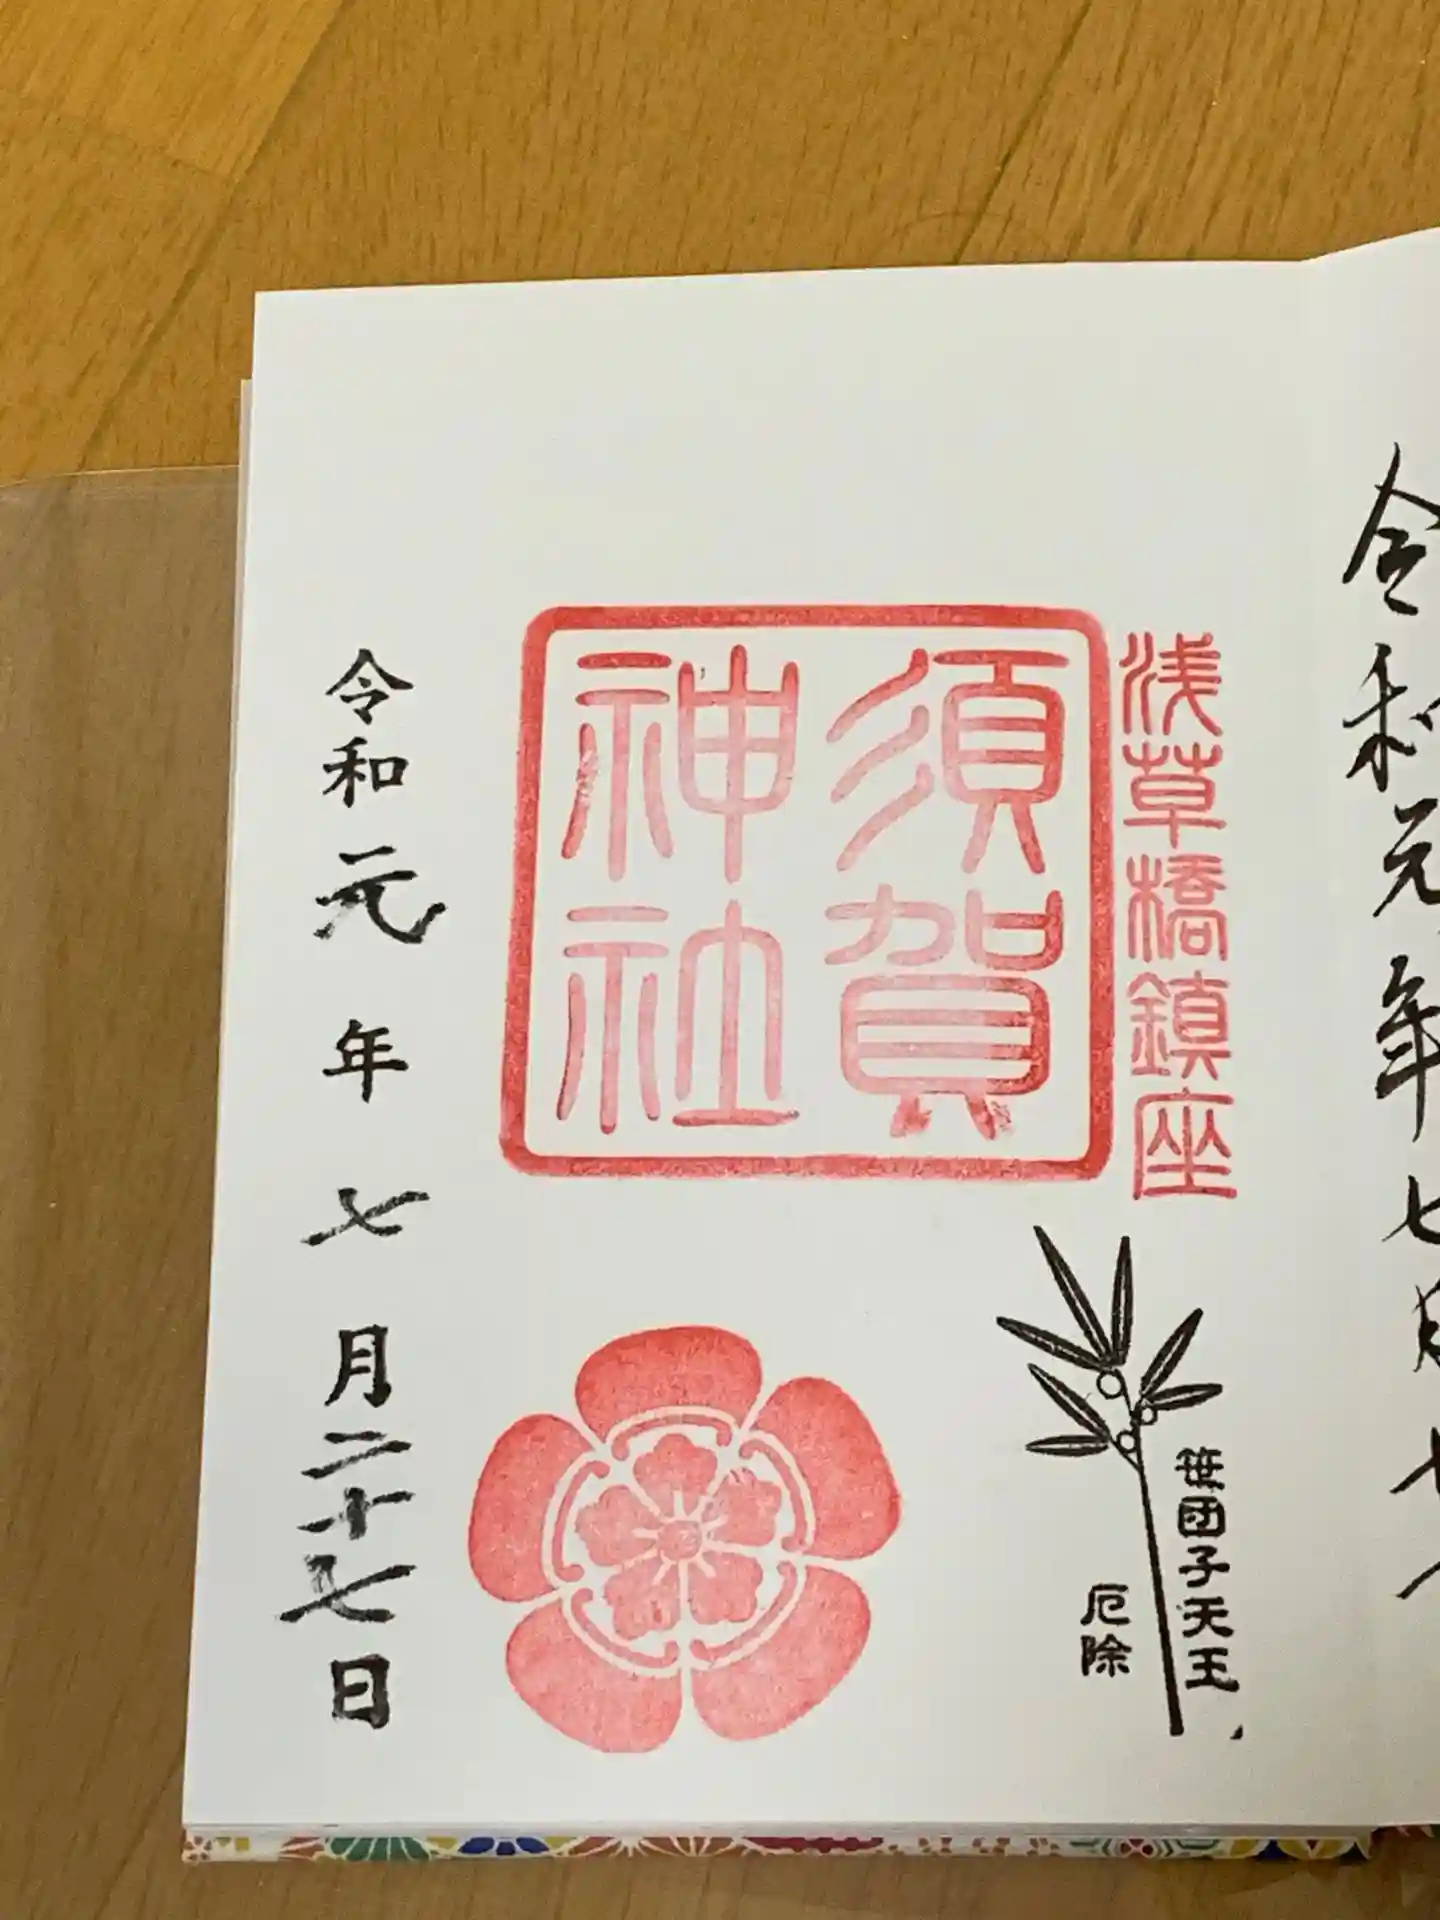 令和元年七月七
浅草橋鎮座
須賀
神社
笹団子天王
厄除
令和元年七月二十七日